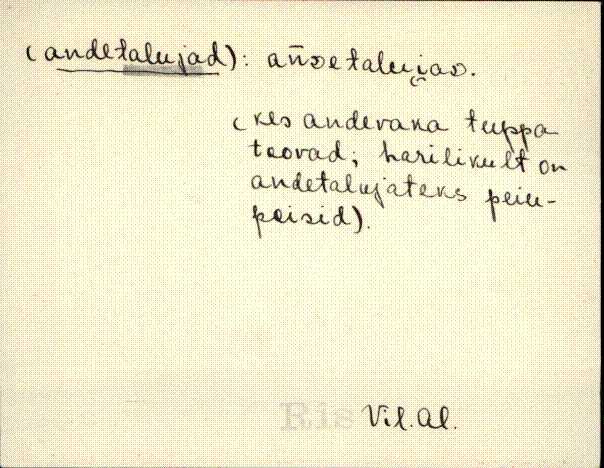 (andetalujad): añᴅetalui̯aᴅ.
(kes andevaka tuppa
toovad; harilikult on
andetalujateks peiu-
poisid).
Ris Vil. Al.